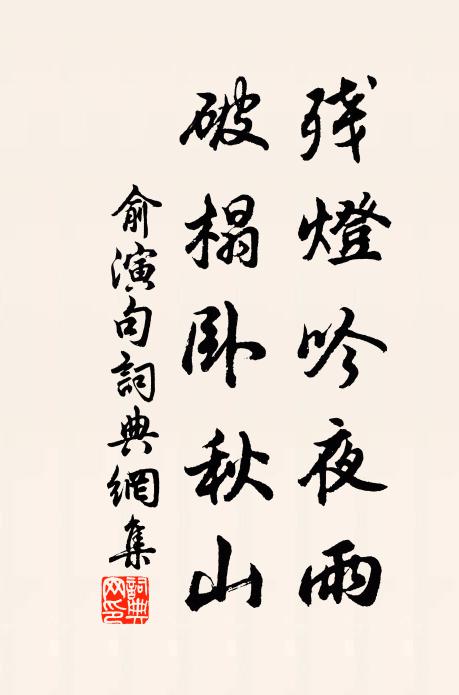 残燈吟夜雨
破榻卧秋山
俞演句詞典網集
詞典网印